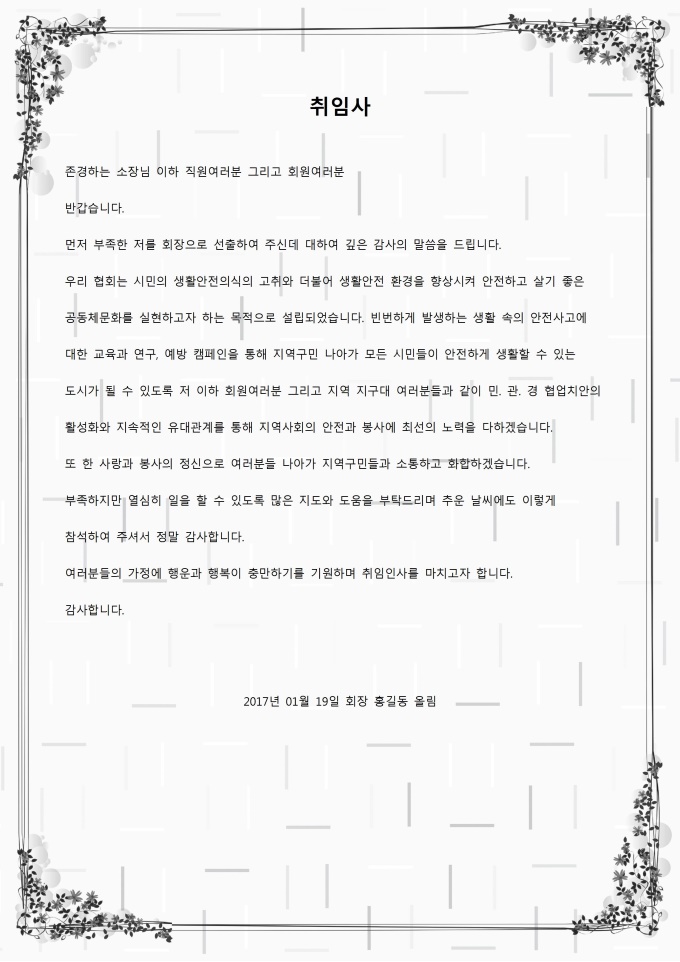 취임사
존경하는 소장님 이하 직원여러분 그리고 회원여러분
반갑습니다.
먼저 부족한 저를 회장으로 선출하여 주신데 대하여 깊은 감사의 말씀을 드립니다.
우리 협회는 시민의 생활안전의식의 고취와 더불어 생활안전 환경을 향상시켜 안전하고 살기 좋은
공동체문화를 실현하고자 하는 목적으로 설립되었습니다. 빈번하게 발생하는 생활 속의 안전사고에
대한 교육과 연구, 예방 캠페인을 통해 지역구민 나아가 모든 시민들이 안전하게 생활할 수 있는
도시가 될 수 있도록 저 이하 회원여러분 그리고 지역 지구대 여러분들과 같이 민. 관. 경 협업치안의
활성화와 지속적인 유대관계를 통해 지역사회의 안전과 봉사에 최선의 노력을 다하겠습니다.
또 한 사랑과 봉사의 정신으로 여러분들 나아가 지역구민들과 소통하고 화합하겠습니다.
부족하지만 열심히 일을 할 수 있도록 많은 지도와 도움을 부탁드리며 추운 날씨에도 이렇게
참석하여 주셔서 정말 감사합니다.
여러분들의 가정에 행운과 행복이 충만하기를 기원하며 취임인사를 마치고자 합니다.
감사합니다.
2017년 01월 19일 회장 홍길동 올림